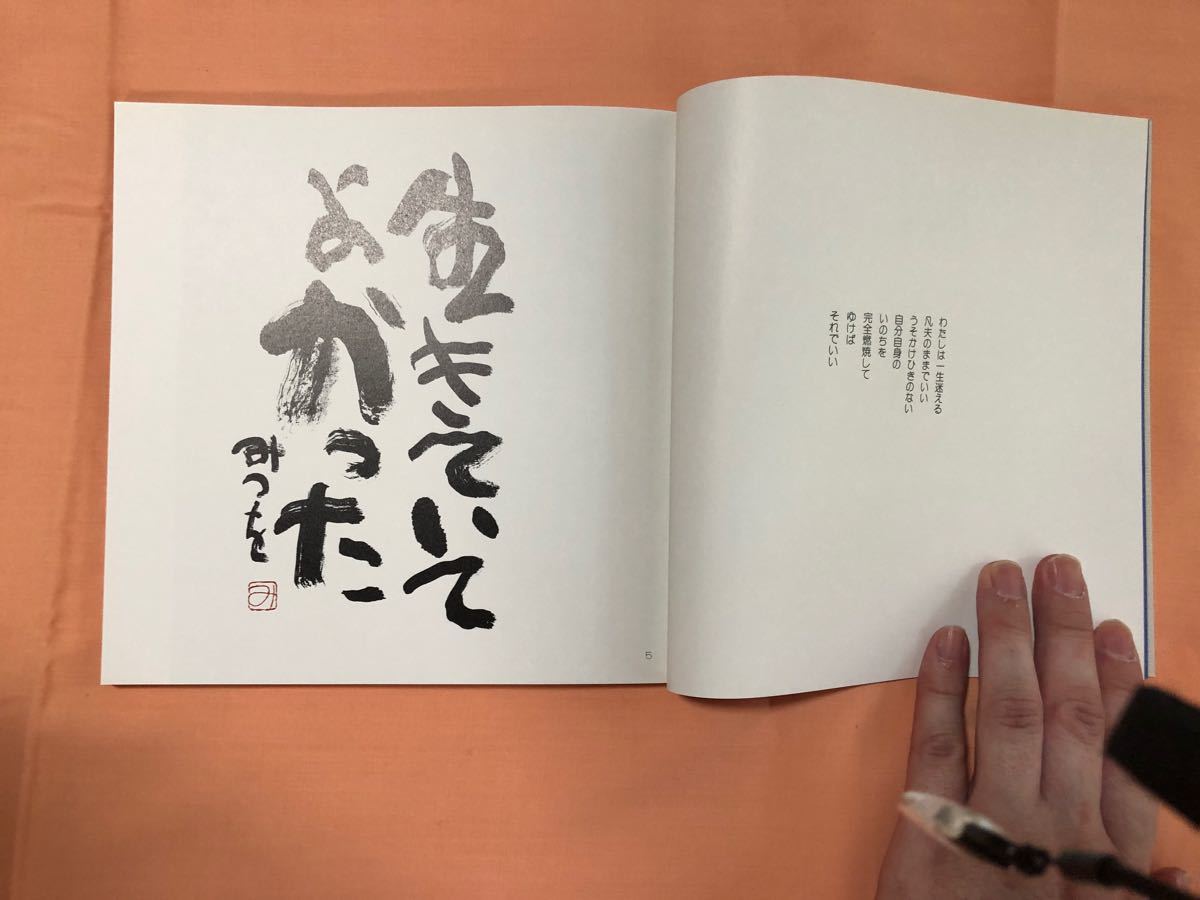 わたしは一生迷える
凡夫のままでいい
うそかけひきのない
自分自身の
いのちを
完全燃焼して
ゆけば
それでいい
生きていて
よかった
みつを
み
5